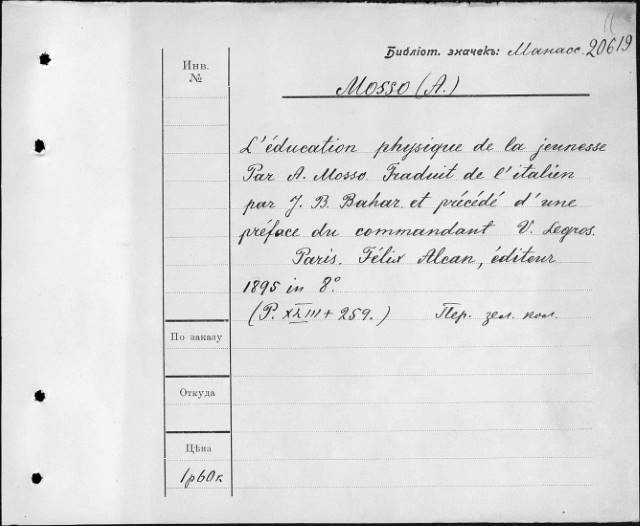 Библіот. значекъ: Манасс. 20619
Инв.
№
Mosso (A.)
L'éducation physique de la jeunesse
Par A. Mosso. Traduit de l'italien
par J. B. Bahar. et précédé d'une
préface du commandant V. Legros.
Paris. Félix Alcan, éditeur
1895 in 8°
(P. XXIII + 259.) Пер. зел. кол.
По заказу
Откуда
Цѣна
1 р 60 к.